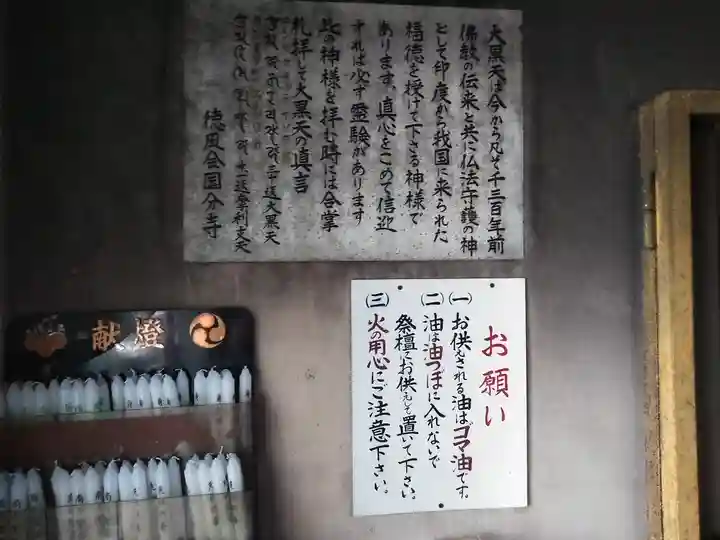 大黒天は今から凡そ千三百年前
佛教の伝来と共に仏法守護の神
として印度から我国に来られた
福徳を授けて下さる神様で
あります。真心をこめて信迎
すれば必ず霊験があります
此の神様を拝む時には合掌
礼拝して大黒天の真言
三返大黒天
返摩利支天
徳風会国分寺
お願い
(一) お供えされる油はゴマ油です。
(二) 油は油つぼに入れないで
祭壇にお供えして置いて下さい。
(三) 火の用心にご注意下さい。
献燈